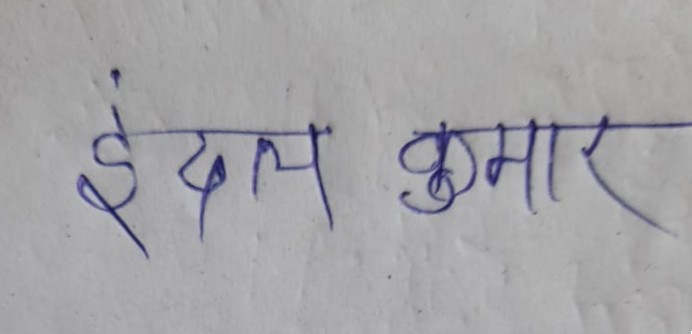 इंदल कुमार